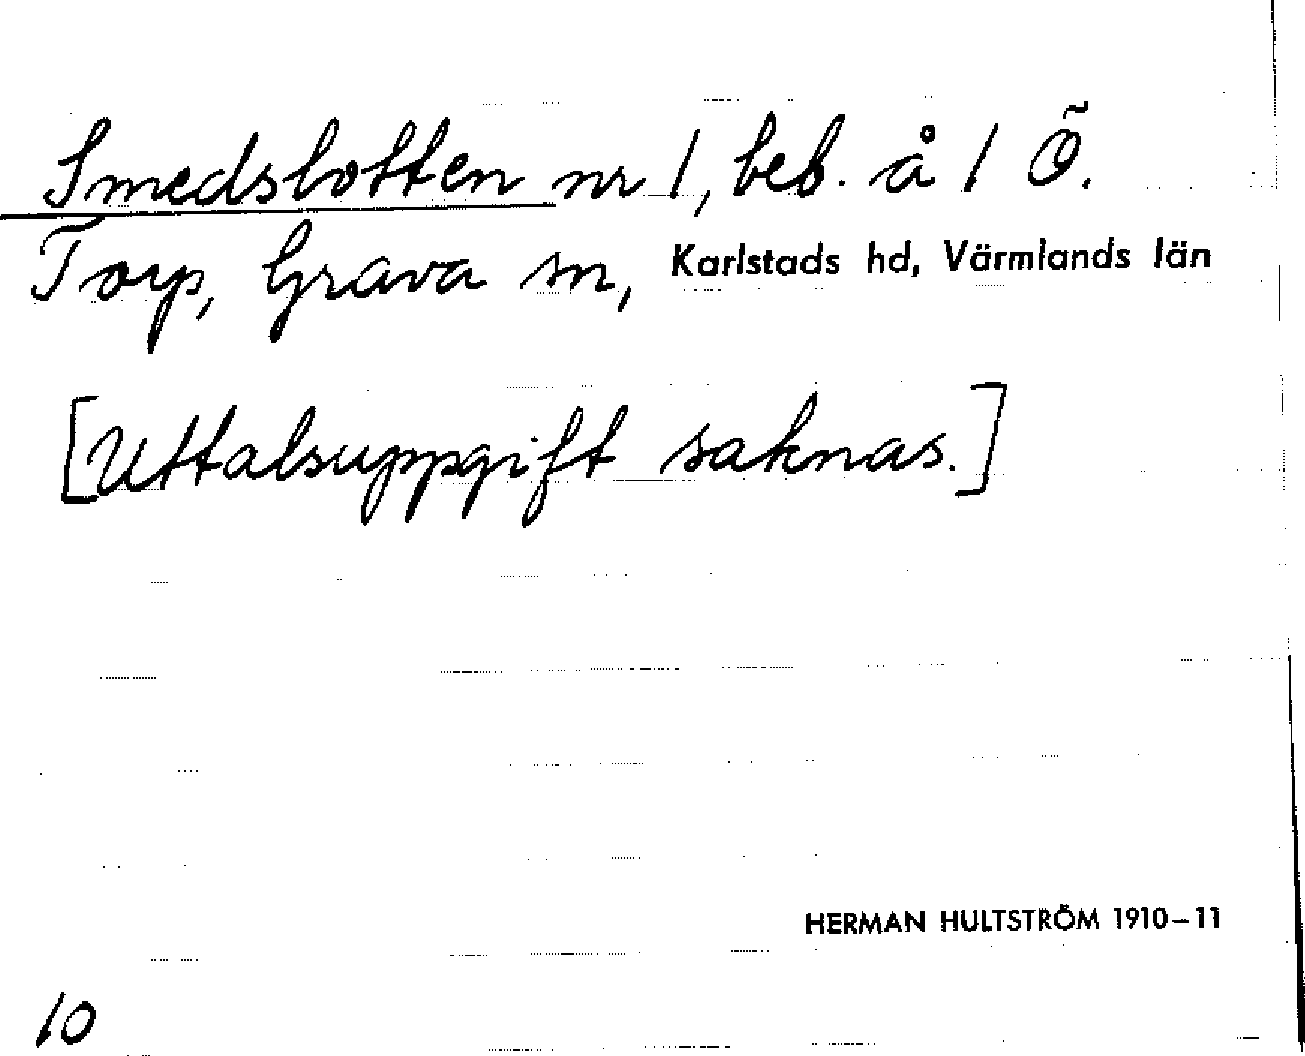 Smedslotten nr 1, beb. å 1 Ö.
Torp, Grava sn, Karlstads hd, Värmlands län
[Uttalsuppgift saknas.]
HERMAN HULTSTRÖM 1910–11
10